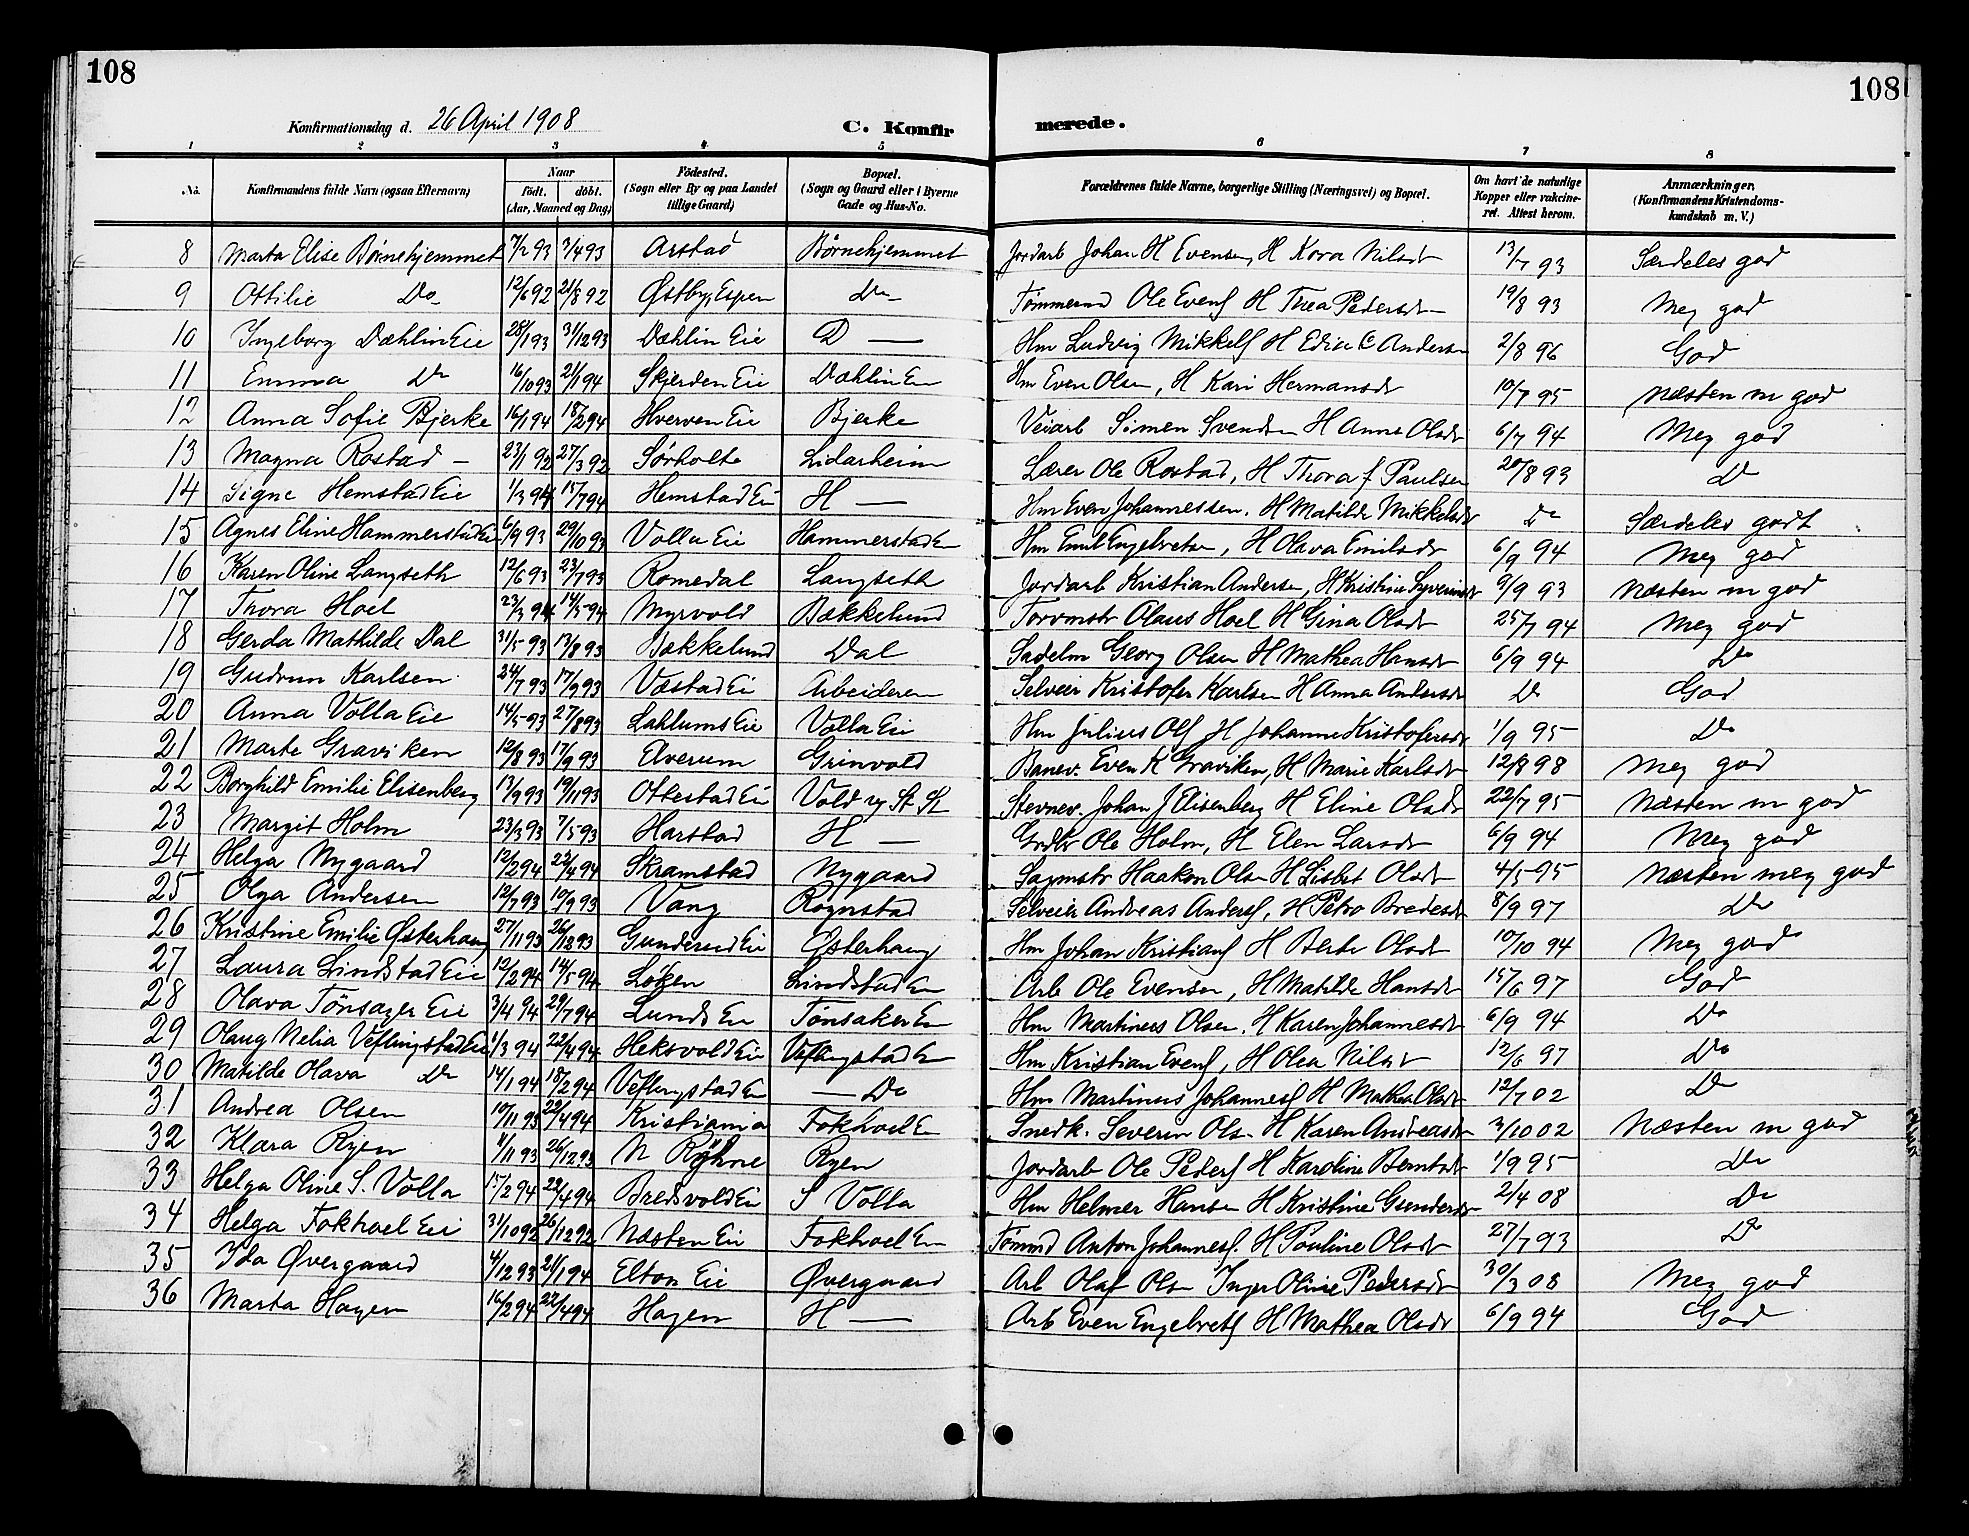 108
108
Konfirmationsdag d. 26 April 1908
C. Konfir
merede.
1 2 3 4 5 6 7 8
No. Konfirmandens fulde Navn (ogsaa Efternavn) Naar født. døbt. (Aar, Maaned og Dag) Fødested. (Sogn eller By og paa Landet tillige Gaard) Bopæl. (Sogn og Gaard eller i Byerne Gade og Hus-No. Forældrenes fulde Navne, borgerlige Stilling (Næringsvei) og Bopæl. Om havt de naturlige Kopper eller vakcineret. Attest herom. Anmærkninger. (Konfirmandens Kristendomskundskab m. V.)
8 Marta Elise Børnehjemmet 7/2 93 3/4 93 Arstad Børnehjemmet Jordarb Johan H Evensen, H Kora Nilsdr 13/7 93 Særdeles god
9 Ottilie Do 12/6 92 21/8 92 Østby, Espen Do Tømmermd Ole Evens H Thea Pedersdr 19/8 93 Meg god
10 Ingeborg Dæhlin Eie 28/1 93 31/12 93 Dæhlin Eie D — Hm Ludvig Mikkels H Andersen 2/8 96 God
11 Emma Do 16/10 93 21/1 94 Skjerden Eie Dæhlin E Hm Even Olsen, H Kari Hermansdr 10/7 95 Næsten m god
12 Anna Sofie Bjerke 16/1 94 18/2 94 Hverven Eie Bjerke Veiarb Simen Svends H Anne Olsdr 6/7 94 Meg god
13 Magna Rostad — 23/1 92 27/3 92 Sørholte Lidarheim Lærer Ole Rostad, H Thora f Paulsen 20/8 93 Do
14 Signe Hemstad Eie 1/3 94 15/7 94 Hemstad Ei H — Hm Even Johannessen. H Matilde Mikkelsdr Do Særdeles godt
15 Agnes Eline Hammerstad Ei 6/9 93 29/10 93 Volla Eie Hammerstad E Hm Emil Engebretsen, H Olava Emilsdr 6/9 94 Meg god
16 Karen Oline Langseth 12/6 93 23/7 93 Romedal Langseth Jordarb Kristian Andersen, H Kristine Syverinsdr 9/9 93 Næsten m god
17 Thora Hoel 23/3 94 14/5 94 Myrvold Bakkelund Torvmstr Olaus Hoel H Gina Olsdr 25/7 94 Meg god
18 Gerda Mathilde Dal 31/5 93 13/8 93 Bakkelund Dal Sadelm Georg Olsen H Mathea Hansdr 6/9 94 Do
19 Gudrun Karlsen 24/7 93 17/9 93 Væstad Ei Arbeideren Selveier Kristofer Karlsen H Anna Andersdr Do God
20 Anna Volla Eie 14/5 93 27/8 93 Lahlums Eie Volla Ei Hm Julius Ols H Johanne Kristofersdr 1/9 95 Do
21 Marte Graviken 12/8 93 17/9 93 Elverum Grinvold Banev. Even K Graviken, H Marie Karlsdr 12/8 98 Meg god
22 Borghild Emilie Elisenberg 13/9 93 19/11 93 Ottestad Ei Vold v St Johan J Elisenberg H Eline Olsdr 22/7 95 Næsten m god
23 Margit Holm 23/3 93 7/5 93 Harstad H — Grdbr Ole Holm, H Elen Larsdr 6/9 94 Meg god
24 Helga Nygaard 12/2 94 22/4 94 Skramstad Nygaard Sagmstr Haakon Olsen H Lisbet Olsdr 4/5 95 Næsten meg god
25 Olga Andersen 12/7 93 10/9 93 Vang Rognstad Selveier Andreas Anders, H Petra Bredesdr 8/9 97 Do
26 Kristine Emilie Østerhaug 27/11 93 26/12 93 Gunderud Ei Østerhaug Hm Johan Kristians H Berte Olsdr 10/10 94 Meg god
27 Laura Lindstad Eie 12/2 94 14/5 94 Løken Lindstad E Arb Ole Evensen, H Matilde Hansdr 15/6 97 God
28 Olava Tønsager Eie 3/4 94 29/7 94 Lunds Ei Tønsaker E Hm Martinus Olsen. H Karen Johannesdr 6/9 94 Do
29 Olaug Nelia Veflingstad Eie 1/3 94 22/4 94 Heksvold Ei Veflingstad E Hm Kristian Evens, H Olea Nilsdr 12/6 97 Do
30 Matilde Olava Do 14/1 94 18/2 94 Veflingstad E — Do Hm Martinus Johannes H Mathea Olsdr 12/7 02 Do
31 Andrea Olsen 10/11 93 22/4 94 Kristiania Fokhoel E Snedk. Severin Ols H Karen Andreasdr 3/10 02 Næsten m god
32 Klara Ryen 11/11 93 26/12 93 N Ryhne Ryen Jordarb Ole Peders H Karoline Berntsdr 1/9 95 Do
33 Helga Oline S. Volla 15/2 94 22/4 94 Bredsvold Ei S Volla Hm Helmer Hansen H Kristine Gundersdr 2/4 08 Do
34 Helga Fokhoel Eie 31/10 92 26/12 92 Næsten Eie Fokhoel E Tømmd Anton Johannes. H Pouline Olsdr 27/7 93 Do
35 Ida Øvergaard 4/12 93 21/1 94 Elton Eie Øvergaard Arb Olaf Ols Inger Oline Pedersdr 30/3 08 Meg god
36 Marta Hagen 16/2 94 22/4 94 Hagen H — Arb Even Engebrets H Mathea Olsdr 6/9 94 God